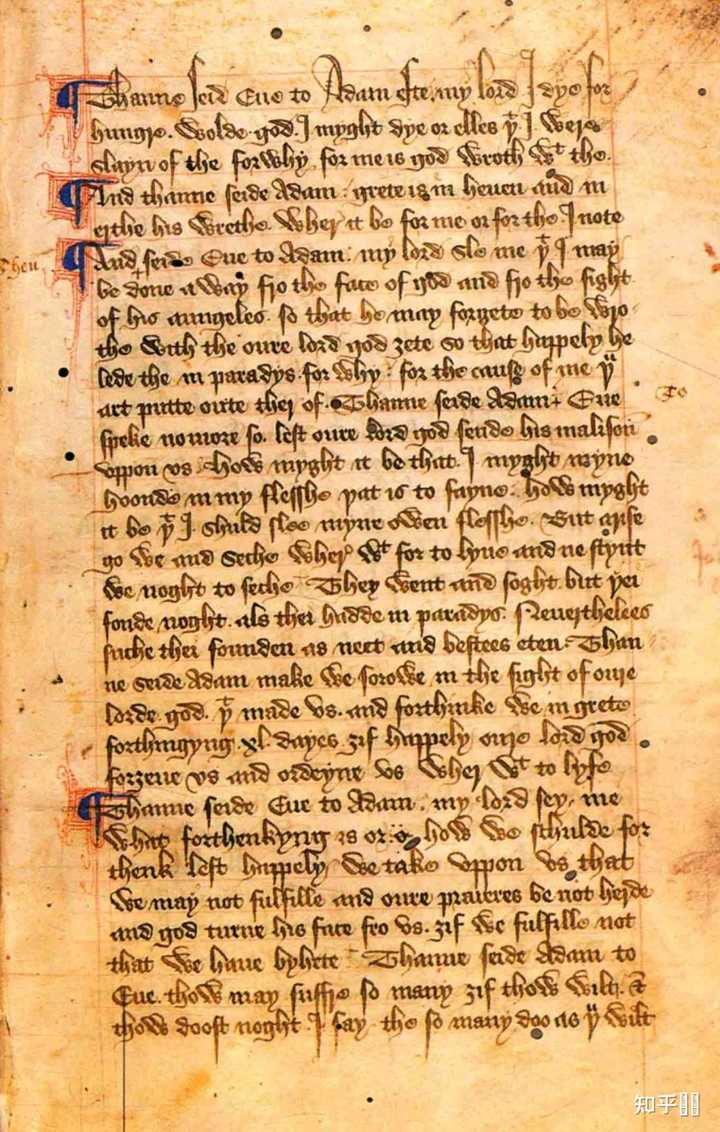 Thanne seid Eue to Adam efte. my lord I dye for
hungre. Wolde god. I myght dye or elles þͭ I. were
slayn of the forwhy for me is god wroth wͭ the.
And thanne seide Adam. grete is in heuen and in
erthe his wrethe. Wher it be for me or for the. I note
And seide Eue to Adam. my lord sle me þͭ I may
then
be done a way fro the face of god and fro the sight
of his aungeles. so that he may forgete to be wro-
the with the oure lord god ȝete so that happely he
lede the in paradys. for why. for the cause of me þͧ
art putte oute ther of. Thanne seide Adam. Eue
To
speke no more so. lest oure lord god sende his malison
vppon vs. How myght it be that. I myght myne
hoonde in my flesshe þat is to sayne. how myght
it be þͭ I. shuld slee myne owen flesshe. But arise
go we and seche wher wͭ for to lyue and ne stynt
we noght to seche They went and soght but þei
fonde noght. als thei hadde in paradys. Neuerthelees
suche thei founden as neet and bestees eten. Than-
ne seide Adam make we sorowe in the sight of oure
lorde god. þͭ made vs. and forthinke we in grete
forthingyng. xl. dayes ȝif happely oure lord god
forȝeue vs and ordeyne vs wher wͭ to lyfe
Thanne seide Eue to Adam. my lord sey. me
what forthenkyng is or how we schulde for
thenk lest happely we take vppon vs that
we may not fulfille and oure praieres be not herde
and god turne his face fro vs. ȝif we fulfille not
that we haue byhete Thanne seide Adam to
Eue. thow may suffre so many ȝif thow wilt. &
thow doost noght. I say the so many doo as þͧ wilt
知乎